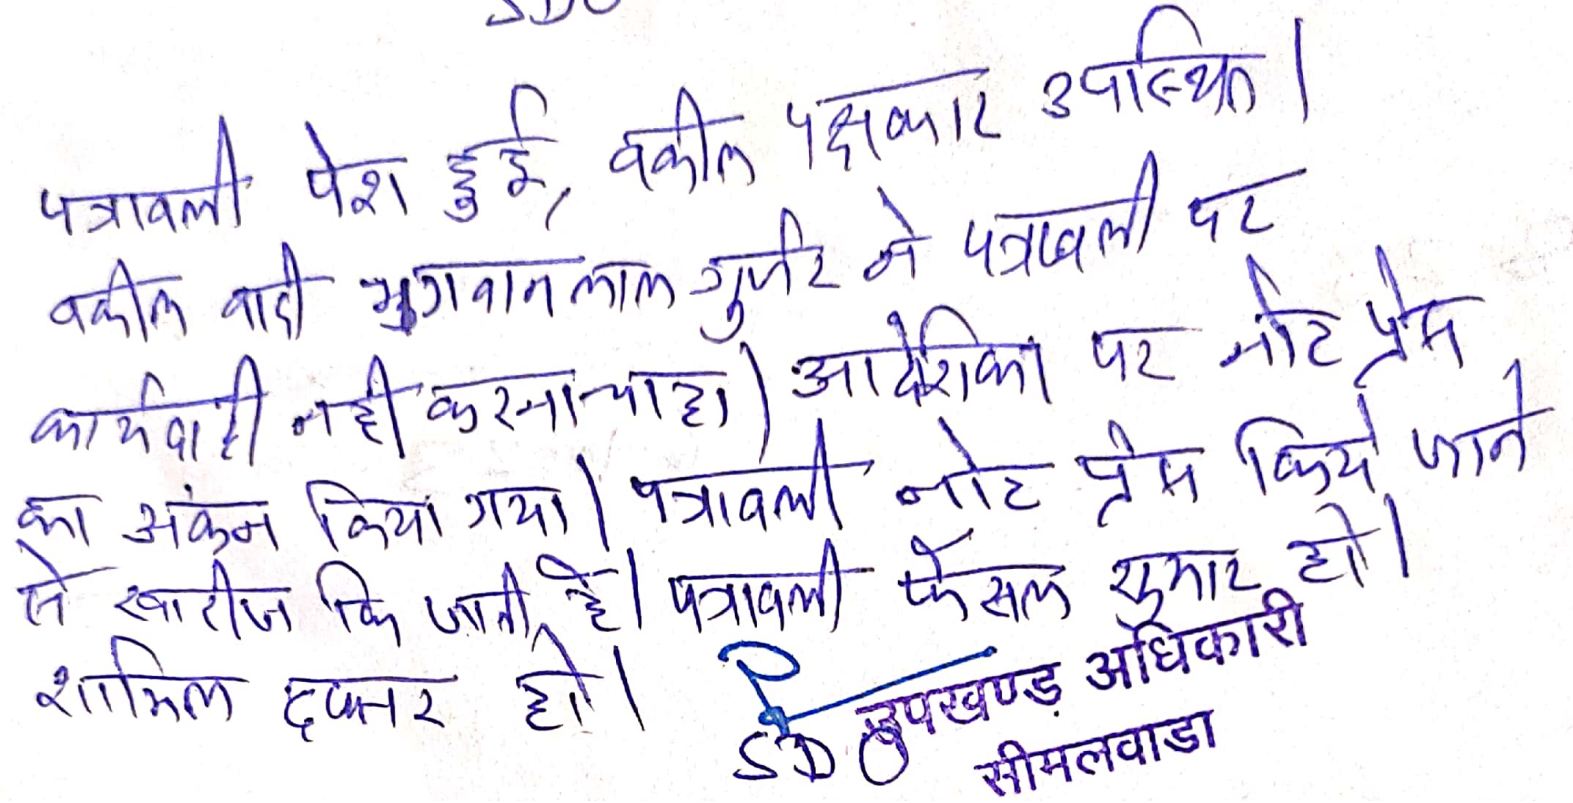 SDO
पत्रावली पेश हुई, वकील पक्षकार उपस्थित।
वकील वादी भगवानलाल गुर्जर ने पत्रावली पर
कार्यवाही नही करना चाहा। आदेशिका पर नोट प्रेस
का अंकन किया गया। पत्रावली नोट प्रेस किये जाने
से खारीज कि जाती है। पत्रावली फैसल शुमार हो।
शामिल दफ्तर हो।
SDO
उपखण्ड अधिकारी
सीमलवाडा